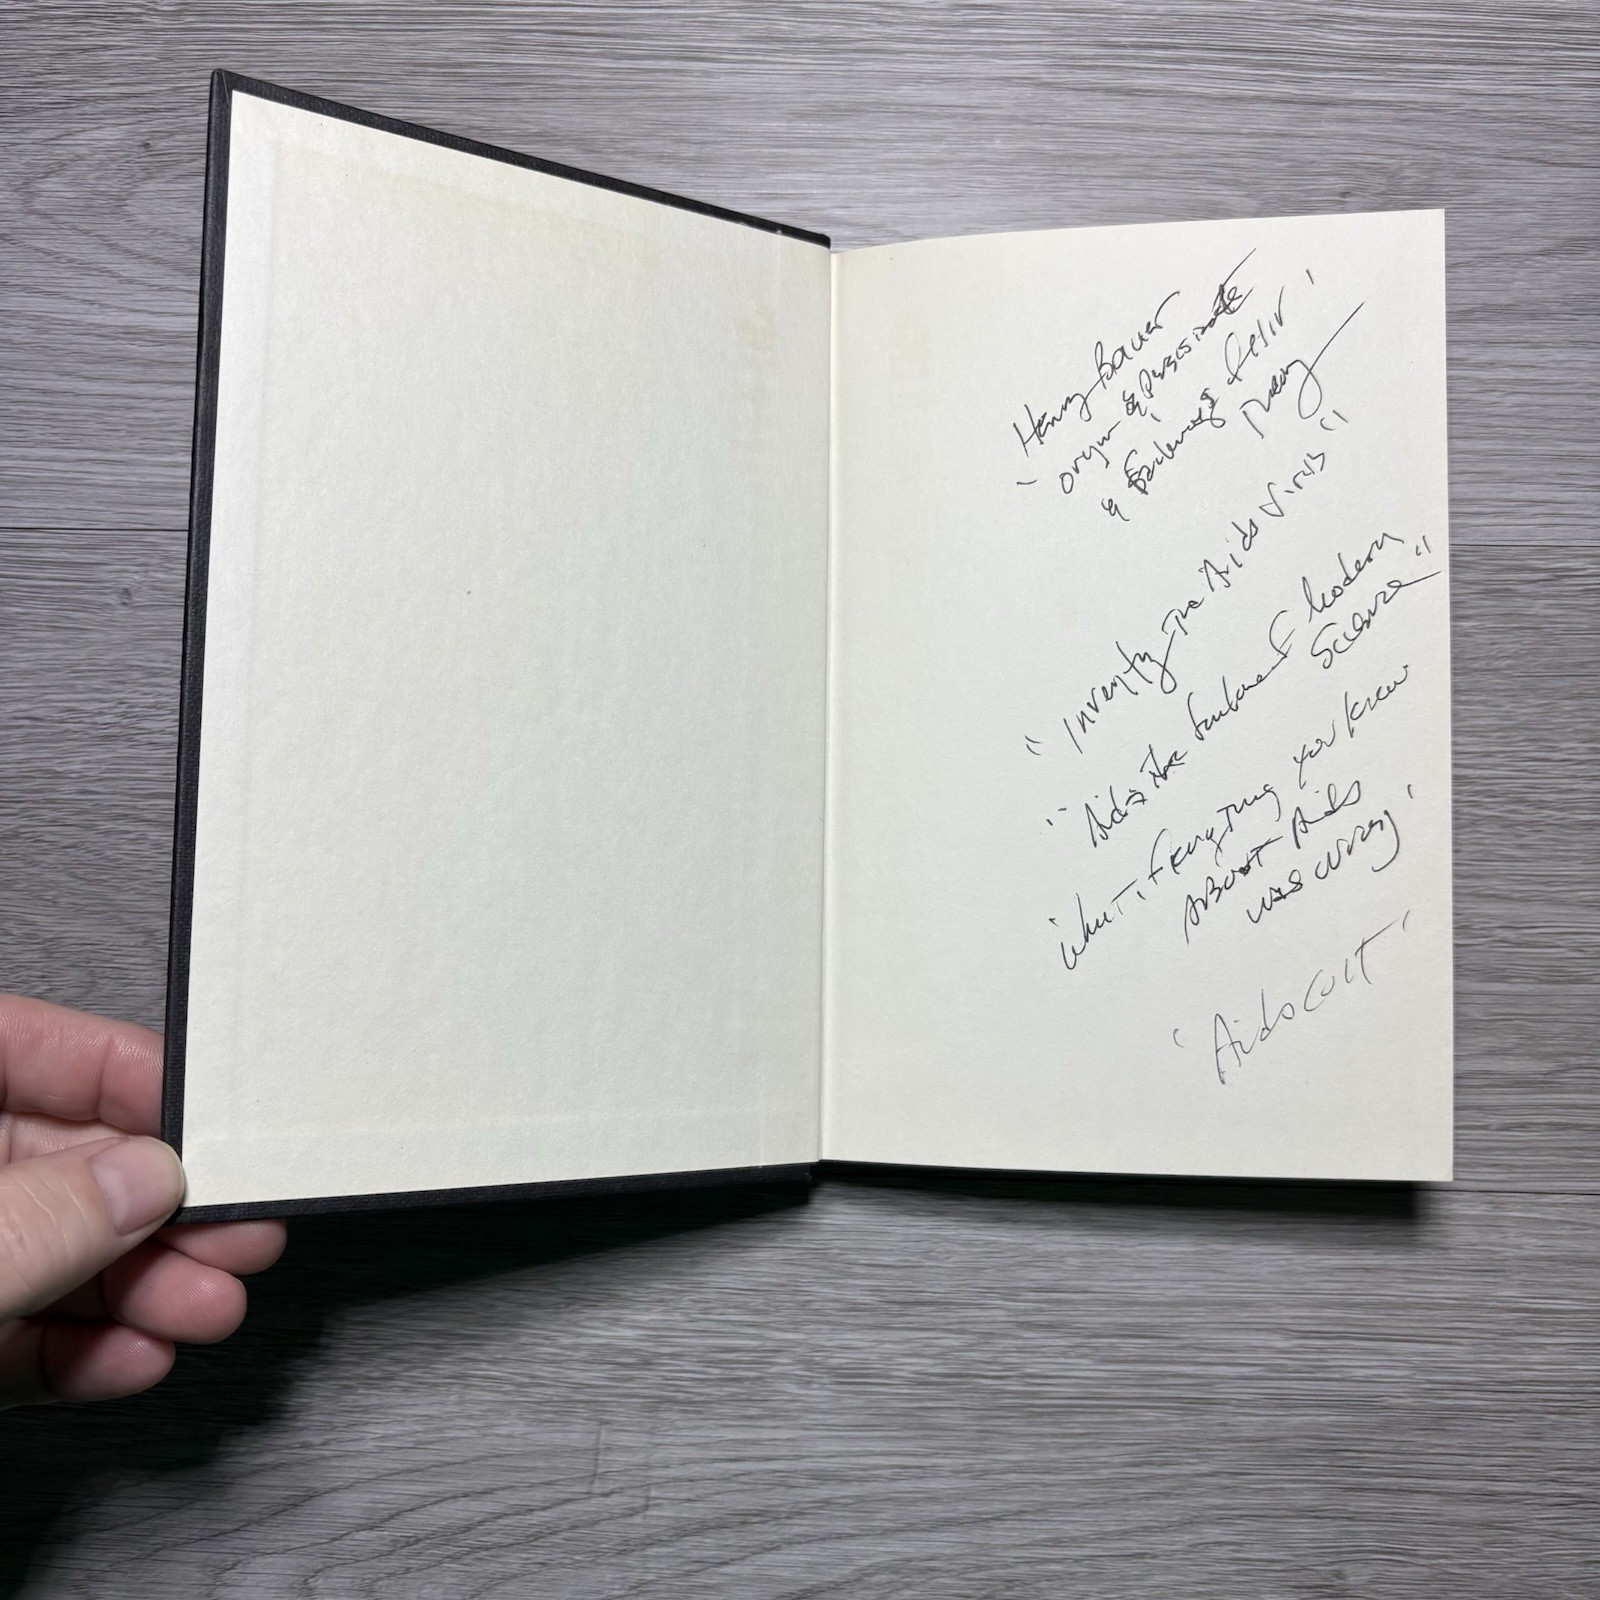 Henry Bauer
" origin & Persistence
& Failings of HIV '
Theory
" Inventing The Aids Virus "
" Aids The Failure of Modern
Science "
" What if Everything You Knew
About Aids
was wrong '
' Aids Cult '